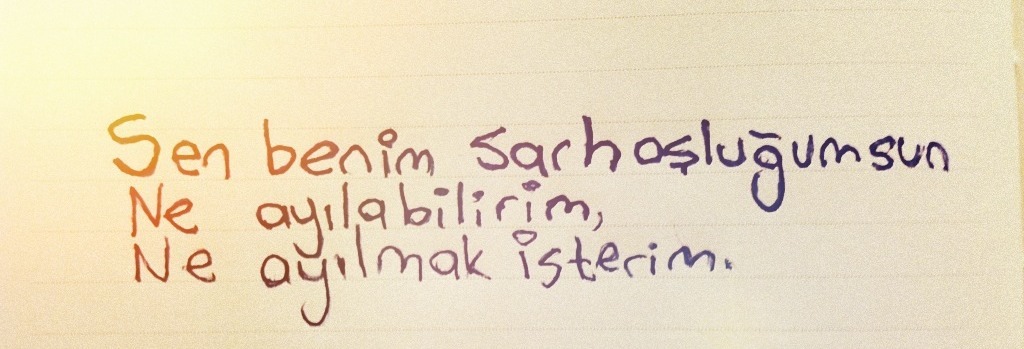 Sen benim sarhoşluğumsun
Ne ayılabilirim,
Ne ayılmak isterim.